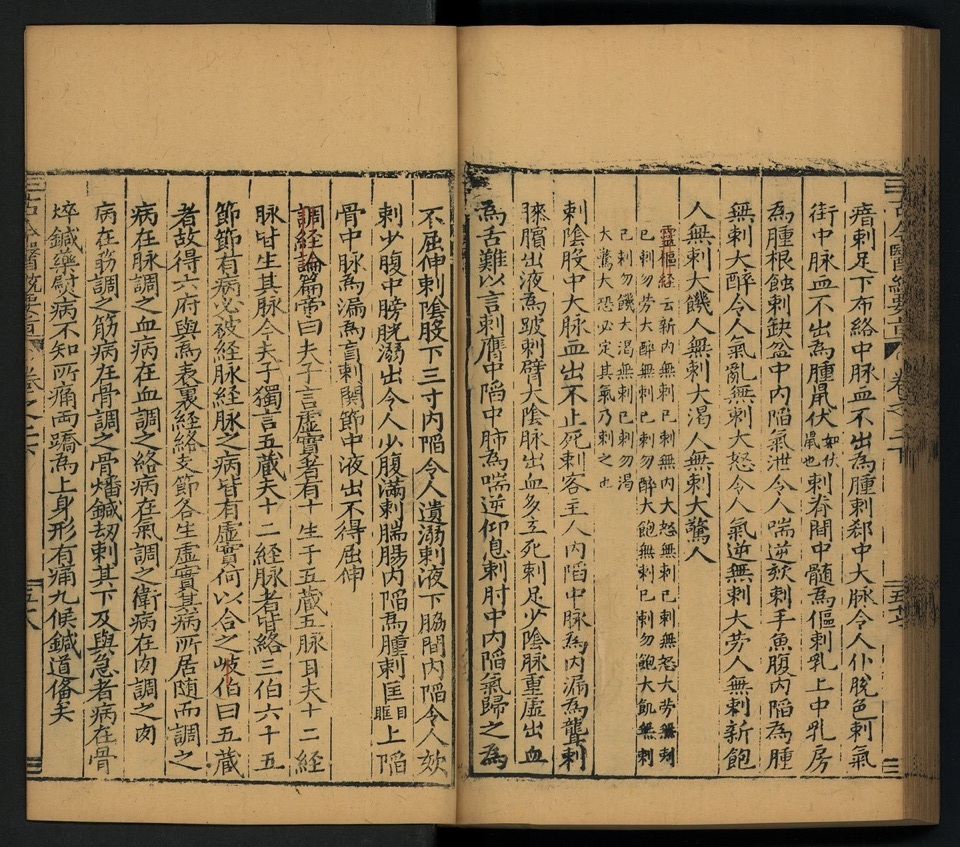 瘖刺足下布絡中脉血不出為腫刺郄中大脉令人仆脫色刺氣
街中脉血不出為腫鼠伏如伏鼠也刺脊間中髓為傴刺乳上中乳房
為腫根蝕刺缺盆中内陷氣泄令人喘逆欬刺手魚腹内陷為腫
無刺大醉令人氣亂無刺大怒令人氣逆無刺大劳人無刺新飽
人無刺大饑人無刺大渴人無刺大驚人
靈樞経云新内無刺已刺無内大怒無刺已刺無怒大劳無刺
已刺勿劳大醉無刺已刺勿醉大飽無刺已刺勿飽大飢無刺
已刺勿饑大渴無刺已刺勿渴
大驚大恐必定其氣乃刺之也
刺陰股中大脉血出不止死刺客主人内陷中脉為内漏為聾刺
膝臏出液為跛刺臂大陰脉出血多立死刺足少陰脉重虚出血
為舌難以言刺膺中陷中肺為喘逆仰息刺肘中内陷氣歸之為
不屈伸刺陰股下三寸内陷令人遺溺刺液下脇間内陷令人欬
刺少腹中膀胱溺出令人少腹滿刺腨腸内陷為腫刺匡目眶上陷
骨中脉為漏為盲刺関節中液出不得屈伸
調経論篇帝曰夫子言虚實者有十生于五蔵五脉耳夫十二経
脉皆生其脉今夫子獨言五蔵夫十二経脉者皆絡三伯六十五
節節有病必被経脉経脉之病皆有虚實何以合之岐伯曰五蔵
者故得六府與為表裏経絡支節各生虚實其病所居随而調之
病在脉調之血病在血調之絡病在氣調之衛病在肉調之肉
病在筋調之筋病在骨調之骨燔鍼刼刺其下及與急者病在骨
焠鍼藥熨病不知所痛两蹻為上身形有痛九候鍼道俻矣